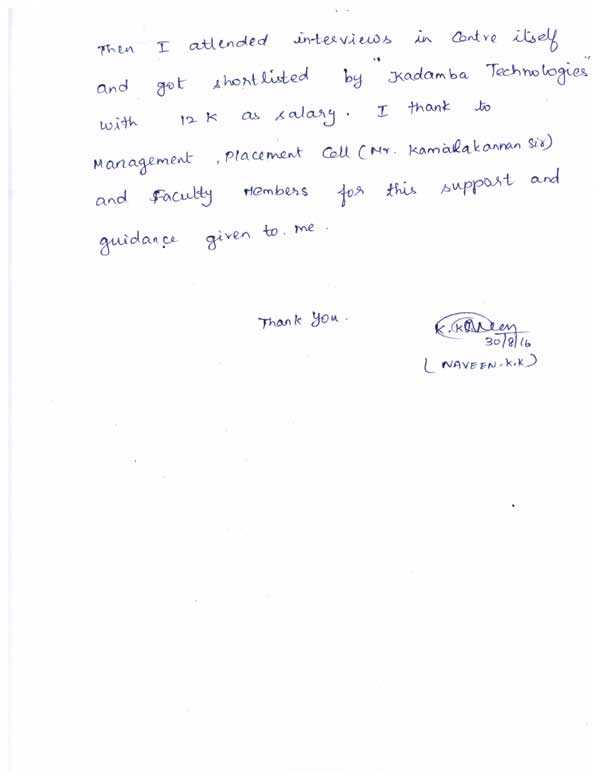 Then I attended interviews in Centre itself
and got shortlisted by "Kadamba Technologies"
with 12K as salary. I thank to
Management, Placement Cell (Mr. Kamalakannan Sir)
and Faculty Members for this support and
guidance given to me.
Thank You.
30/8/16
(NAVEEN.K.K)